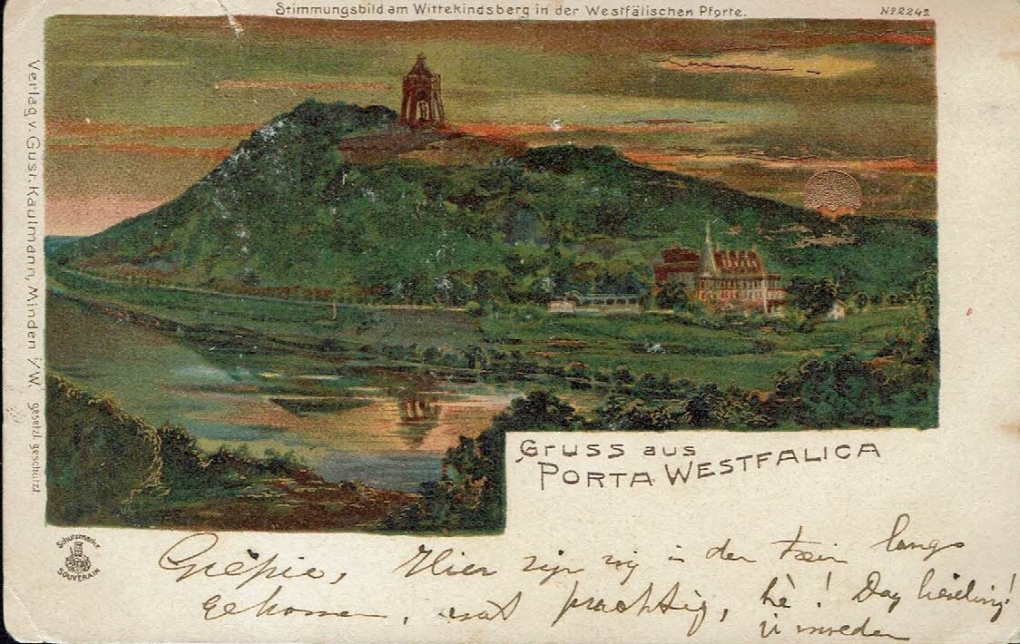 Stimmungsbild am Wittekindsberg in der Westfälischen Pforte.
No 2242
Verlag v. Gust. Kaulmann, Minden i/W. gesetzl. geschützt
Gruss aus
Porta Westfalica
Schutzmarke
SOUVERAIN
Hier zijn wij in den trein langs
gekomen, wat prachtig, hè! Dag lieveling!